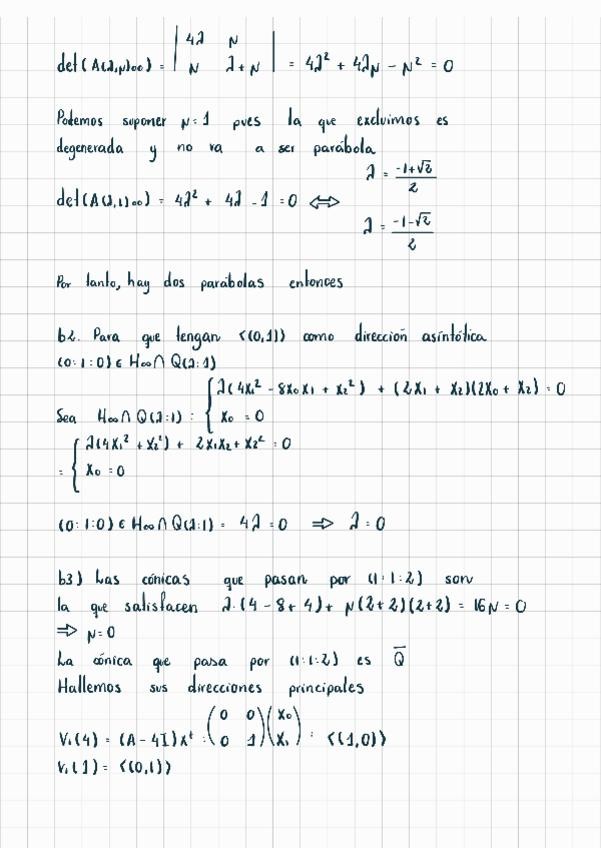 det(A(λ,μ)∞) = | 4λ μ ; μ λ+μ | = 4λ² + 4λμ − μ² = 0
Podemos suponer μ=1 pues la que excluimos es
degenerada y no va a ser parábola
λ = (-1+√2)/2
det(A(λ,1)∞) = 4λ² + 4λ - 1 = 0 ⇔
λ = (-1-√2)/2
Por tanto, hay dos parábolas entonces
b2. Para que tengan <(0,1)> como dirección asíntótica
(0:1:0) ∈ H∞ ∩ Q(λ:1)
Sea H∞ ∩ Q(λ:1) : { λ(4x₁² - 8x₀x₁ + x₂²) + (2x₁ + x₂)(2x₀ + x₂) = 0
x₀ = 0
= { λ(4x₁² + x₂²) + 2x₁x₂ + x₂² = 0
x₀ = 0
(0:1:0) ∈ H∞ ∩ Q(λ:1) = 4λ = 0 ⇒ λ = 0
b3) Las cónicas que pasan por (1:1:2) son
la que satisfacen λ·(4 - 8 + 4) + μ(2+2)(2+2) = 16μ = 0
⇒ μ=0
La cónica que pasa por (1:1:2) es Q̅
Hallemos sus direcciones principales
V₁(4) = (A - 4I)xᵗ : (0 0 ; 0 1)(x₀ ; x₁) : <(1,0)>
V₁(1) = <(0,1)>